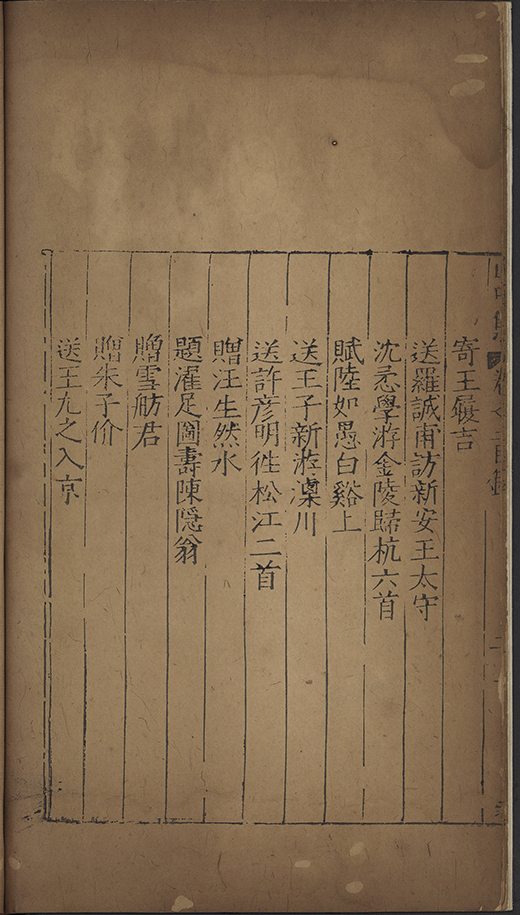 寄王履吉
送羅誠甫訪新安王太守
沈忞學游金陵歸杭六首
賦陸如愚白谿上
送王子新游溧川
送許彦明徃松江二首
贈汪生然水
題濯足圖壽陳隱翁
贈雪舫君
贈朱子价
送王九之入京